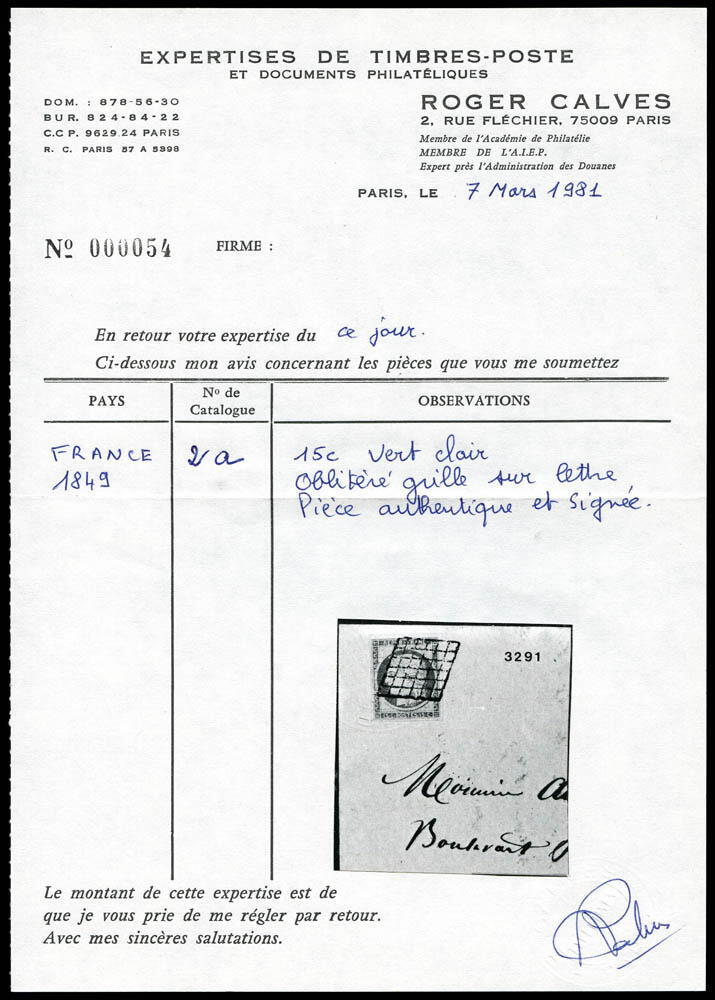 EXPERTISES DE TIMBRES-POSTE
ET DOCUMENTS PHILATÉLIQUES
DOM. : 878-56-30
BUR. 824-84-22
C.C P. 9629.24 PARIS
R. C. PARIS 57 A 5398
ROGER CALVES
2, RUE FLÉCHIER, 75009 PARIS
Membre de l'Académie de Philatélie
MEMBRE DE L'A.I.E.P.
Expert près l'Administration des Douanes
PARIS, LE 7 Mars 1981
Nº 000054 FIRME :
En retour votre expertise du ce jour.
Ci-dessous mon avis concernant les pièces que vous me soumettez
PAYS
Nº de
Catalogue
OBSERVATIONS
FRANCE
1849
2a
15c vert clair
Oblitéré grille sur lettre
Pièce authentique et Signée.
3291
15·C·POSTES·15·C·
Boulevart
Le montant de cette expertise est de
que je vous prie de me régler par retour.
Avec mes sincères salutations.
Calves